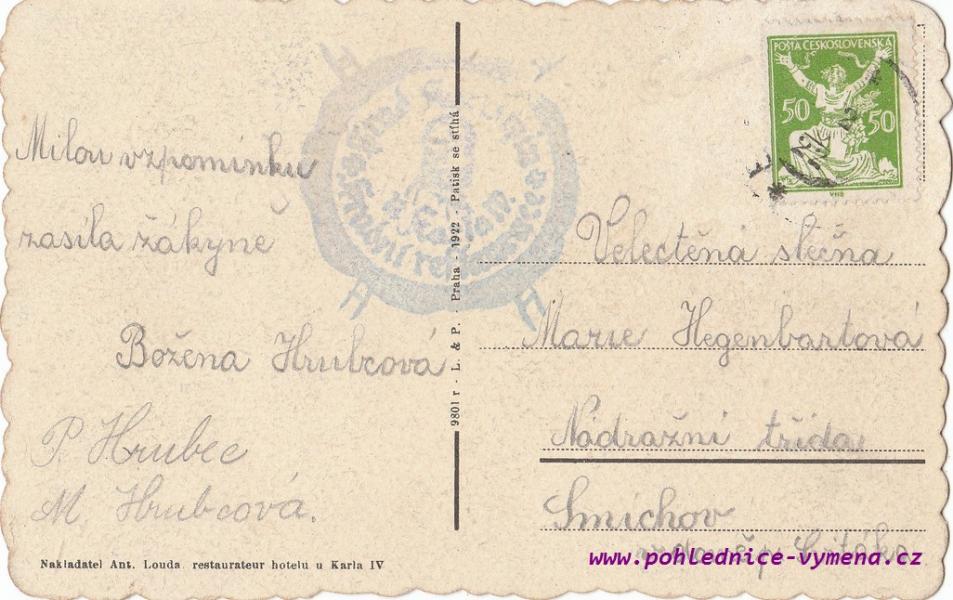 Milou vzpomínku
zasílá žákyně
Božena Hrubcová
P. Hrubec
M. Hrubcová.
Nakladatel Ant. Louda, restaurateur hotelu u Karla IV
9801 r - L. & P. - Praha - 1922 - Patisk se stíhá
POŠTA ČESKOSLOVENSKÁ
50 50
Velectěná slečna
Marie Hegenbartová
Nádražní třída
Smíchov
www.pohlednice-vymena.cz